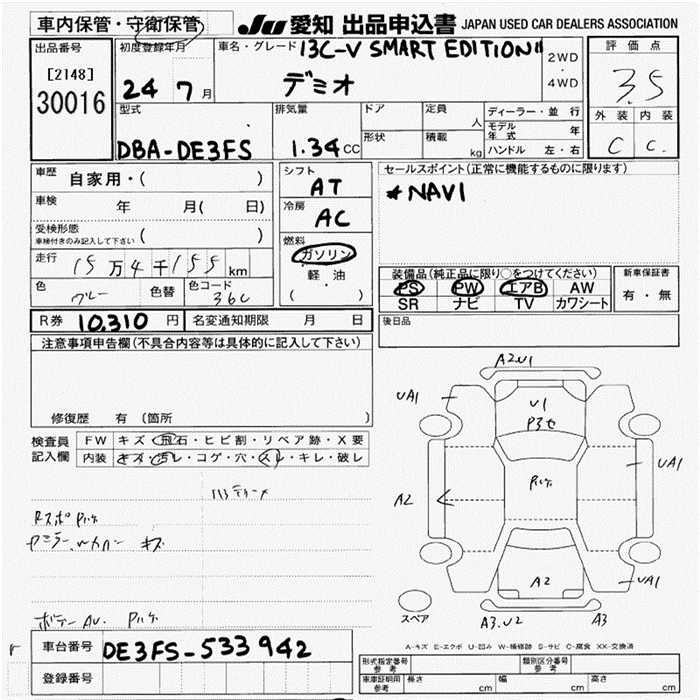 車内保管・守衛保管
JU 愛知 出品申込書 JAPAN USED CAR DEALERS ASSOCIATION
出品番号
[2148]
30016
初度登録年月
24 7 月
車名・グレード 13C-V SMART EDITION"
デミオ
2WD
・
4WD
評価点
3.5
外装 内装
C C.
型式
DBA-DE3FS
排気量
1.34 CC
ドア
定員
人
形状
積載
kg
ディーラー・並行
モデル年式 年
ハンドル 左・右
車歴 自家用・( )
車検 年 月( 日)
受検形態
車検付きのみ記入して下さい ( )
走行 15万4千155 km
色 グレー
色替
色コード
36C
シフト
AT
冷房
AC
燃料
ガソリン
軽・油
( )
セールスポイント(正常に機能するものに限ります)
*NAVI
装備品(純正品に限り○をつけてください)
PS PW エアB AW
SR ナビ TV カワシート
新車保証書
有・無
R券 10,310 円
名変通知期限 月 日
後日品
注意事項申告欄(不具合内容等は具体的に記入して下さい)
修復歴 有 (箇所 )
検査員
記入欄
FW キズ・飛石・ヒビ割・リペア跡・X要
内装 キズ・汚レ・コゲ・穴・スレ・キレ・破レ
RスポPハゲ
キズ
ボデーAU. Pハゲ
A2.U1
UA1
U1
P3セ
UA1
A2
Pハゲ
A2
UA1
A3.U2
A3
スペア
A-キズ E-エクボ U-凹み W-補修跡 S-サビ C-腐食 XX-交換済
車台番号 DE3FS-533942
登録番号
形式指定番号
参考
類別区分番号
参考
車庫証明用
参考
長さ cm
幅 cm
高さ cm